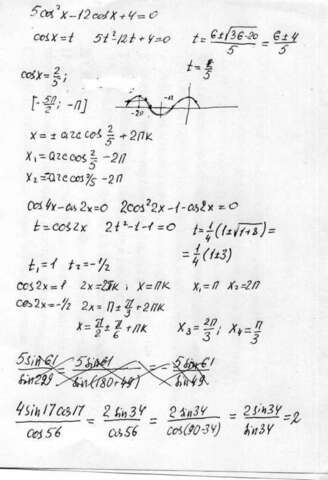 5cos²x-12cosx+4=0
cosx=t   5t²-12t+4=0   t=(6±√36-20)/5=(6±4)/5
t=2/5
cosx=2/5;
[-5π/2; -π]
-2π   -π
x=±arccos 2/5+2πk
x₁=arccos 2/5-2π
x₂=-arccos 2/5-2π
cos4x-cos2x=0   2cos²2x-1-cos2x=0
t=cos2x   2t²-t-1=0   t=1/4(1±√1+8)=
=1/4(1±3)
t₁=1   t₂=-1/2
cos2x=1   2x=2πk; x=πk   x₁=π   x₂=2π
cos2x=-1/2   2x=π±π/3+2πk
x=π/2±π/6+πk   x₃=2π/3; x₄=π/3
5sin61/sin299=5sin61/sin(180+49)=5sin61/sin49
4sin17cos17/cos56=2sin34/cos56=2sin34/cos(90-34)=2sin34/sin34=2